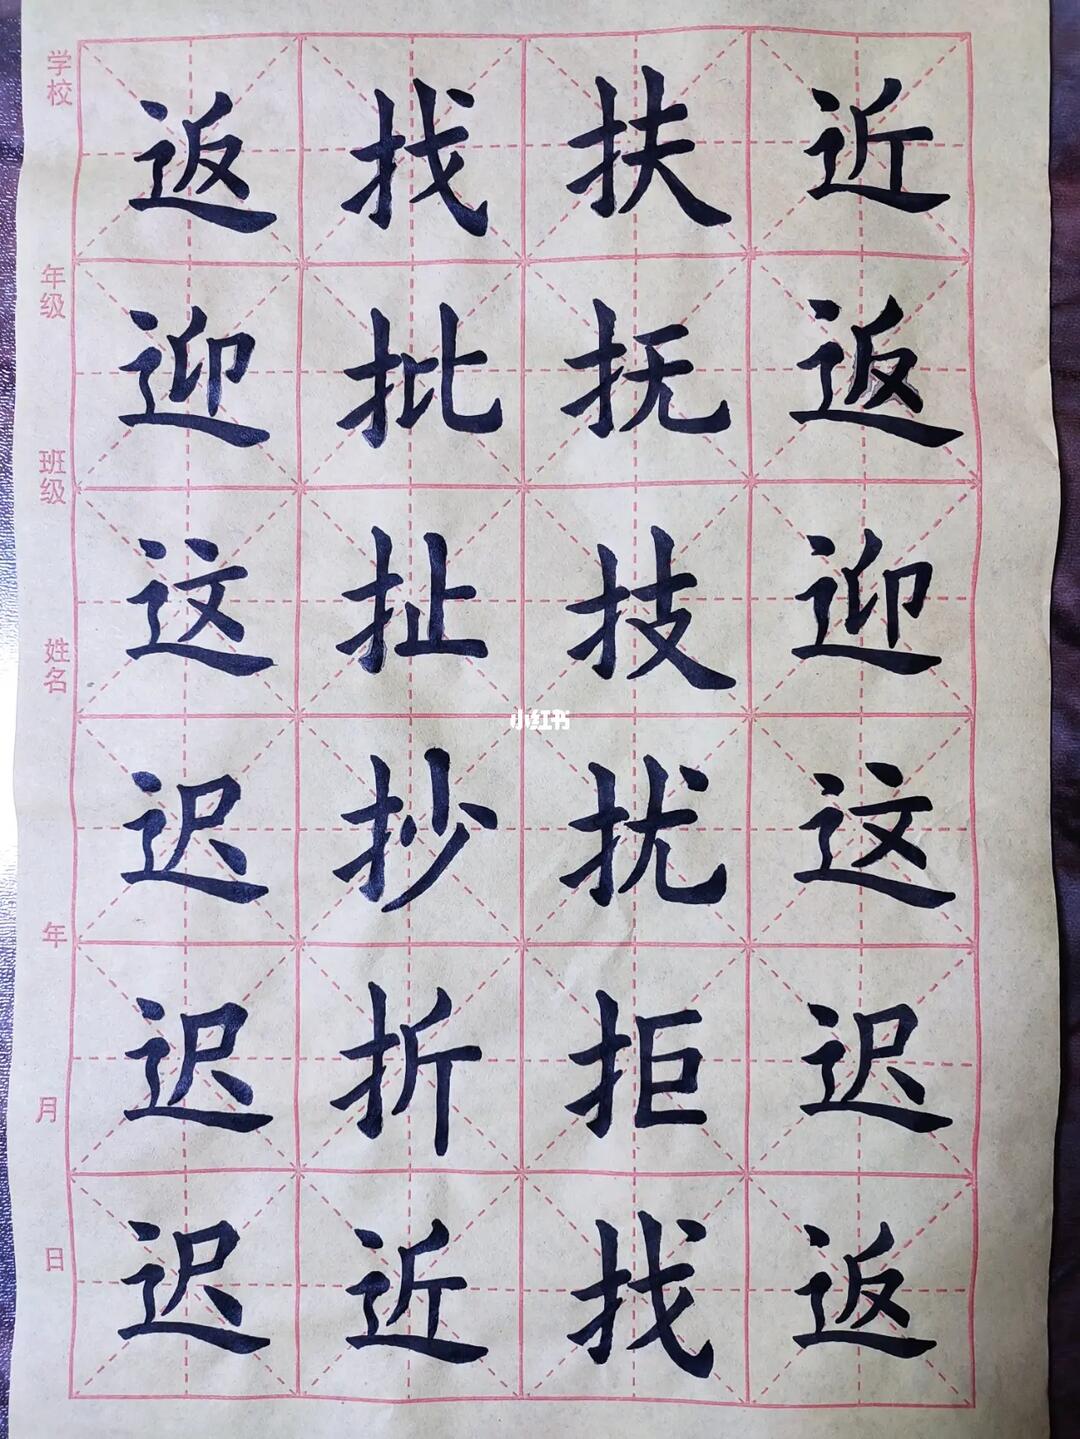 近返迎这迟返
扶抚技扰拒找
找批扯抄折近
返迎这迟迟迟
学校 年级 班级 姓名 年 月 日
小红书